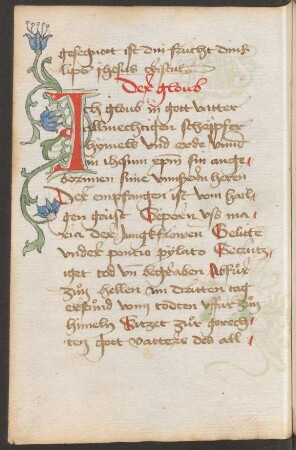 gesegnott ist din frucht dins
lips ihesus cristus
Der gloub
Ich gloub in gott vatter
allmechtigen schöpffer
himels vnd erde vnnd
in ihesum sin ainge
bornnen sune vnnsern herrn
Der empfangen ist vom hail
gen gaist Geporn vss ma
ria der Jungkfrowen Gelitte
vnder pontio pylato Gecrutz
iget tod vn begraben Abfur
zum hellen im dritten tag
erstund vom todten vffur zum
himeln Sitzet zur gerech
ten gott vatters des all